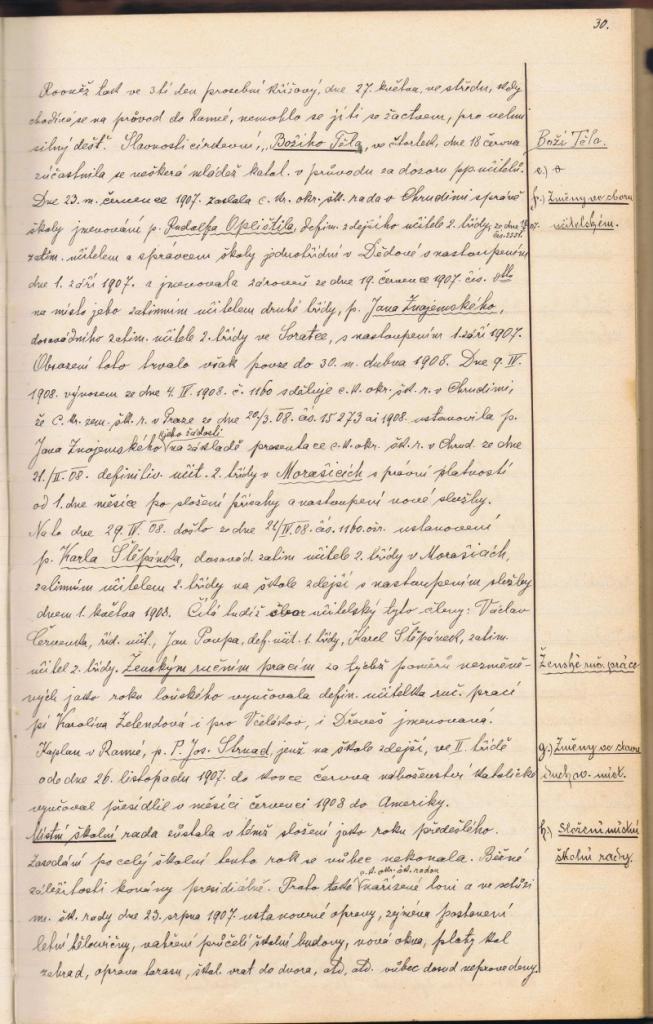 30.
Rovněž tak ve 3tí den prosební křížový, dne 27. května, ve středu, kdy
chodívá se na průvod do Ranné, nemohlo se jíti se žactvem, pro velmi
silný déšť. Slavnosti církevní, "Božího Těla, ve čtvrtek, dne 18 června
zúčastnila se veškerá mládež katol. v průvodu za dozoru pp. učitelů.
Boží Těla.
Dne 23. m. července 1907. zaslala c. k. okr. šk. rada v Chrudimi správě
školy jmenování p. Rudolfa Oplištila, defin. zdejšího učitele 2. třídy, ze dne
f.) Změny ve sboru
učitelském.
zatím. učitelem a správcem školy jednotřídní v Dědové s nastoupením
dne 1. září 1907. a jmenovala zároveň ze dne 19. července 1907. čís.
na místo jeho zatímním učitelem druhé třídy, p. Jana Znojemského,
dosavádního zatím. učitele 2. třídy ve Svratce, s nastoupením 1. září 1907.
Obsazení toto trvalo však pouze do 30. m. dubna 1908. Dne 9. IV.
1908. výnosem ze dne 4. IV. 1908. č. 1160 sděluje c. k. okr. šk. r. v Chrudimi,
že c. kr. zem. šk. r. v Praze ze dne 20/3. 08. čís. 15273 ai 1908 ustanovila p.
Jana Znojemského jeho žádosti na základě presentace c. k. okr. šk. r. v Chrud. ze dne
21./II. 08. definitiv. učit. 2. třídy v Morašicích s právní platností
od 1. dne měsíce po složení přísahy a nastoupení nové služby.
Na to dne 29. IV. 08. došlo ze dne 21/IV. 08. čís. 1160. ustanovení
p. Karla Štěpánka, dosavád. zatím. učitele 2. třídy v Morašicích,
zatímním učitelem 2. třídy na škole zdejší s nastoupením služby
dnem 1. května 1908. Čítá tudíž sbor učitelský tyto členy: Václav
Červenka, říd. učit., Jan Poupa, def. učit. 1. třídy, Karel Štěpánek, zatím.
učitel 2. třídy. Ženským ručním pracím za týchž poměrů nezměně-
Ženské ruč. práce
ných jako roku loňského vyučovala defin. učitelka ruč. prací
pí Karolina Zelendová i pro Včelákov, i Dřeveš jmenovaná.
Kaplan v Ranné, p. P. Jos. Strnad, jenž na škole zdejší, ve II. třídě
g.) Změny ve stavu
duchov. míst.
ode dne 26. listopadu 1907. do konce června náboženství katolické
vyučoval přesídlil v měsíci červenci 1908 do Ameriky.
Místní školní rada zůstala v témž složení jako roku předešlého.
h.) Složení místní
školní rady.
Zasedání po celý školní tento rok se vůbec nekonala. Běžné
záležitosti konány presidiálně. Proto také c. k. okr. šk. radou nařízené loni a ve schůzi
m. šk. rady dne 23. srpna 1907. ustanovené opravy, zejména postavení
letní tělocvičny, natření průčelí školní budovy, nová okna, platy kol
zahrad, oprava tarasu, škol. vrat do dvora, atd., atd. vůbec dosud neprovedeny.